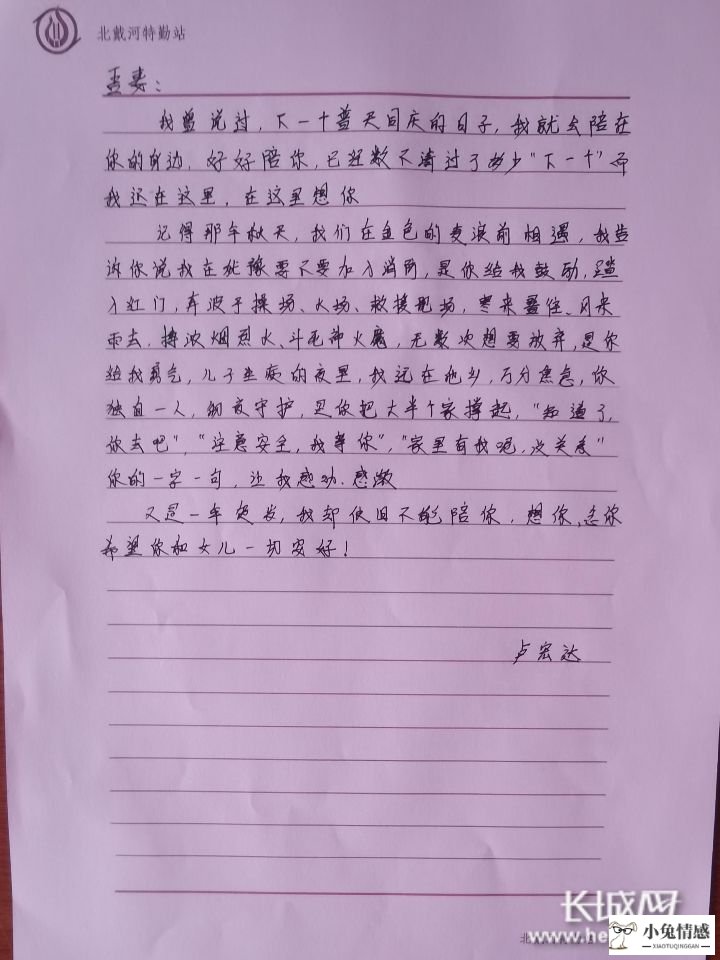 北戴河特勤站
吾妻：
我曾说过，下一个普天同庆的日子，我就会陪在
你的身边，好好陪你，已经数不清过了多少“下一个”而
我还在这里，在这里想你
记得那年秋天，我们在金色的麦浪前相遇，我告
诉你说我在犹豫要不要加入消防，是你给我鼓励，踏
入红门，奔波于操场、火场、救援现场，寒来暑往、风来
雨去，搏浓烟烈火、斗死神火魔，无数次想要放弃，是你
给我勇气，儿子生病的夜里，我远在他乡，万分焦急，你
独自一人，彻夜守护，是你把大半个家撑起，“知道了，
你去吧”，“注意安全，我等你”，“家里有我呢，没关系”
你的一字一句，让我感动、感激
又是一年，我却依旧不能陪你，想你、念你
希望你和女儿一切安好！
卢宏达
长城网
www.he
北
小兔情感
XIAOTUQINGGAN